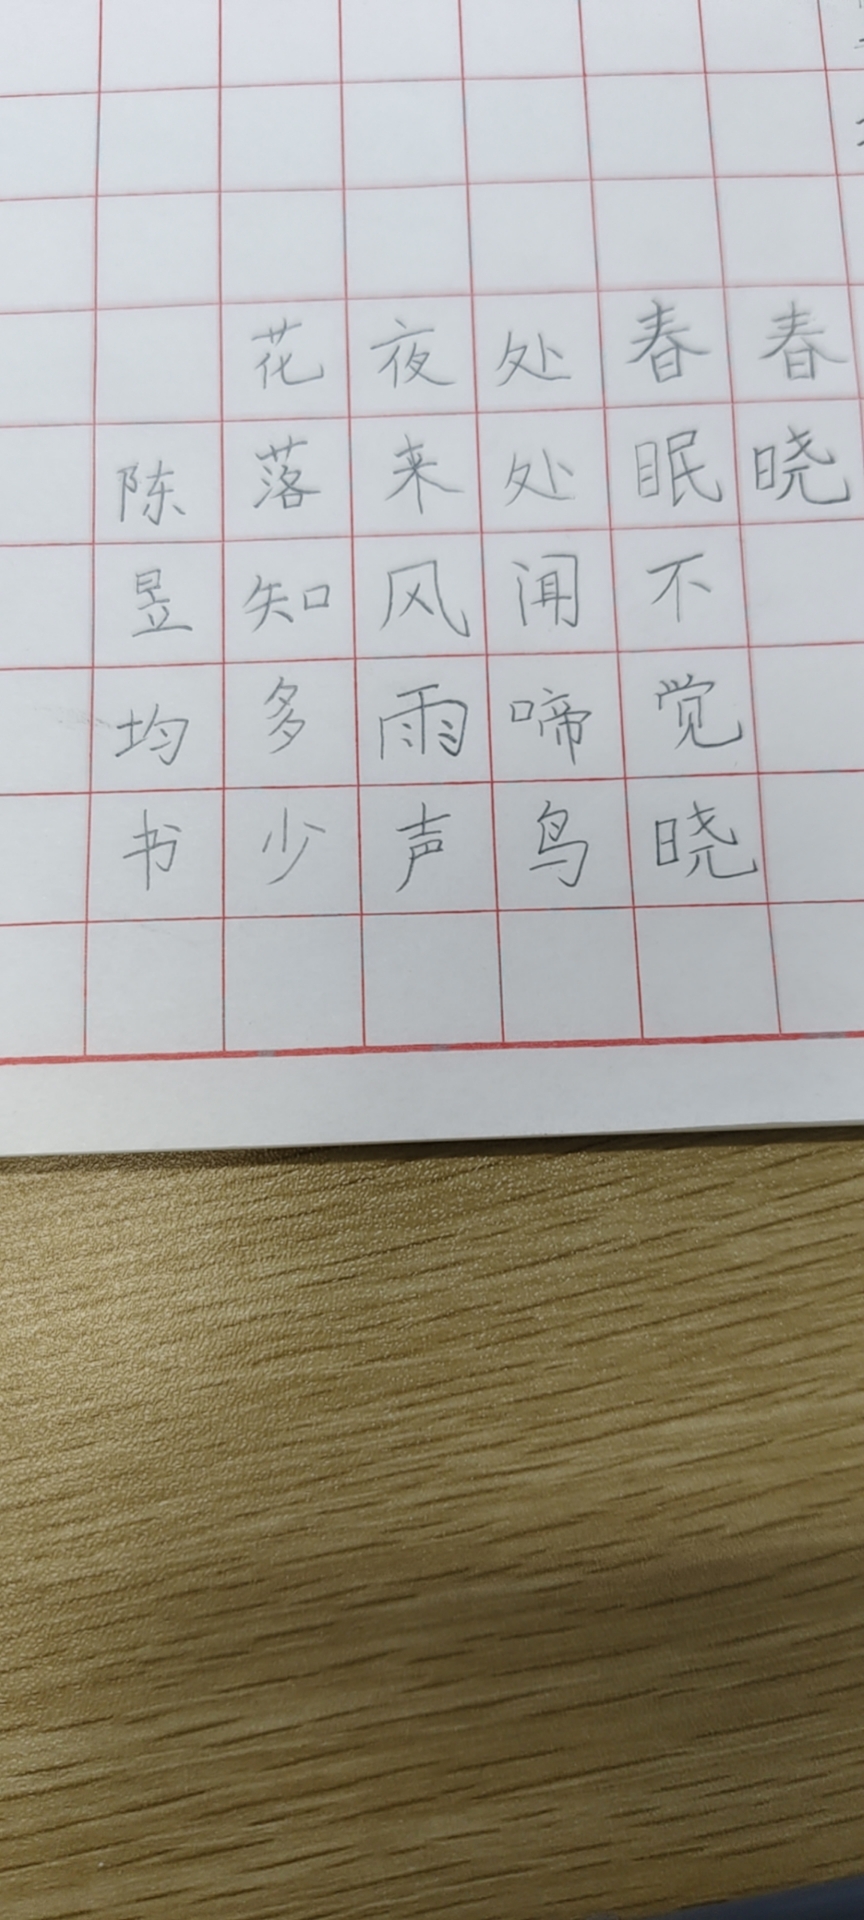 春晓
春眠不觉晓
处处闻啼鸟
夜来风雨声
花落知多少
陈昱均书